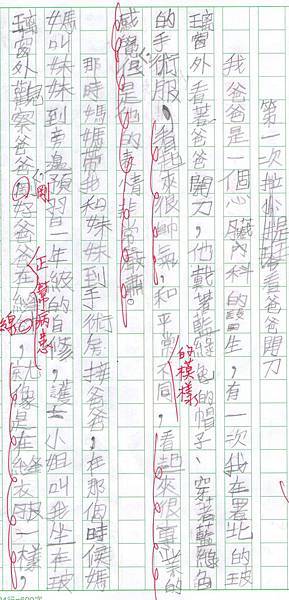 第一次看爸爸開刀
我爸爸是一個心臟內科的醫生，有一次我在署北的玻
璃窗外看著爸爸開刀，他戴著藍綠色的帽子、穿著藍綠色
的手術服，看起來很帥氣，和平常不同，看起來很專業的
的模樣
感覺但是他的表情非常嚴肅。
那時媽媽帶我和妹妹到手術房接爸爸，在那個時候媽
媽叫妹妹到旁邊預習一年級的自修，護士小姐叫我坐在玻
剛
正幫病患
璃窗外觀察爸爸，好爸爸在縫，就像是在縫衣服一樣，
線